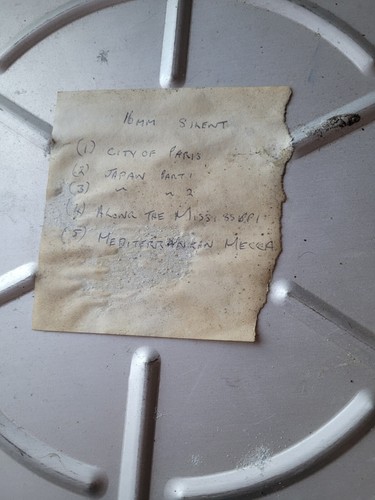 16MM SILENT
(1) CITY OF PARIS
(2) JAPAN PART 1
(3) " " 2
(4) ALONG THE MISSISSIPPI
(5) MEDITERRANEAN MECCA